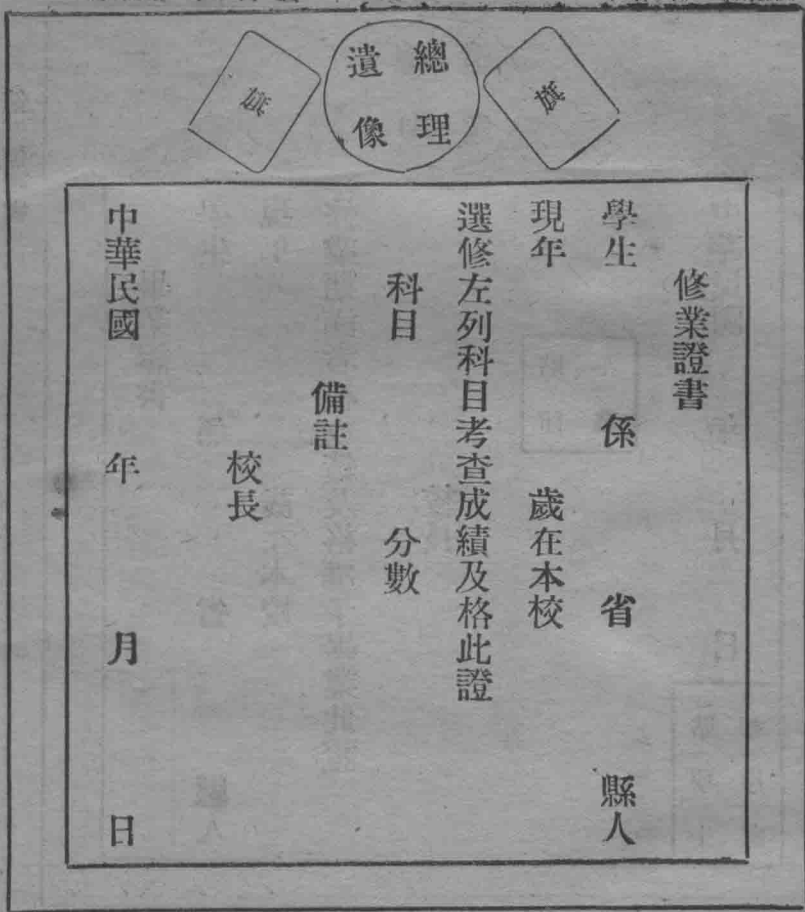 旗
總理
遺像
旗
修業證書
學生 係 省 縣人
現年 歲在本校
選修左列科目考查成績及格此證
科目 分數
備註
校長
中華民國 年 月 日